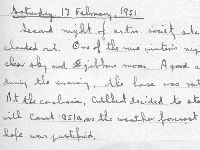 Saturday 17 February, 1951
Second night of astro. society
clouded out. One of the rare winter's nights
clear sky and gibbous moon. A good
during the evening, the house was
At the conclusion, Cuthbert decided to
will count 1951a as the weather forecast
hope was justified.